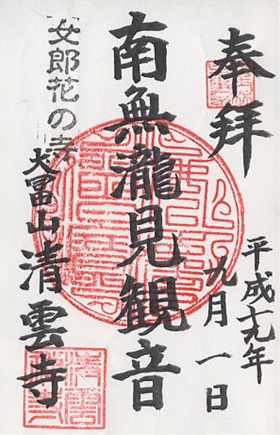 奉拝
平成十九年
九月一日
南無瀧見観音
女郎花の寺
大冨山清雲寺